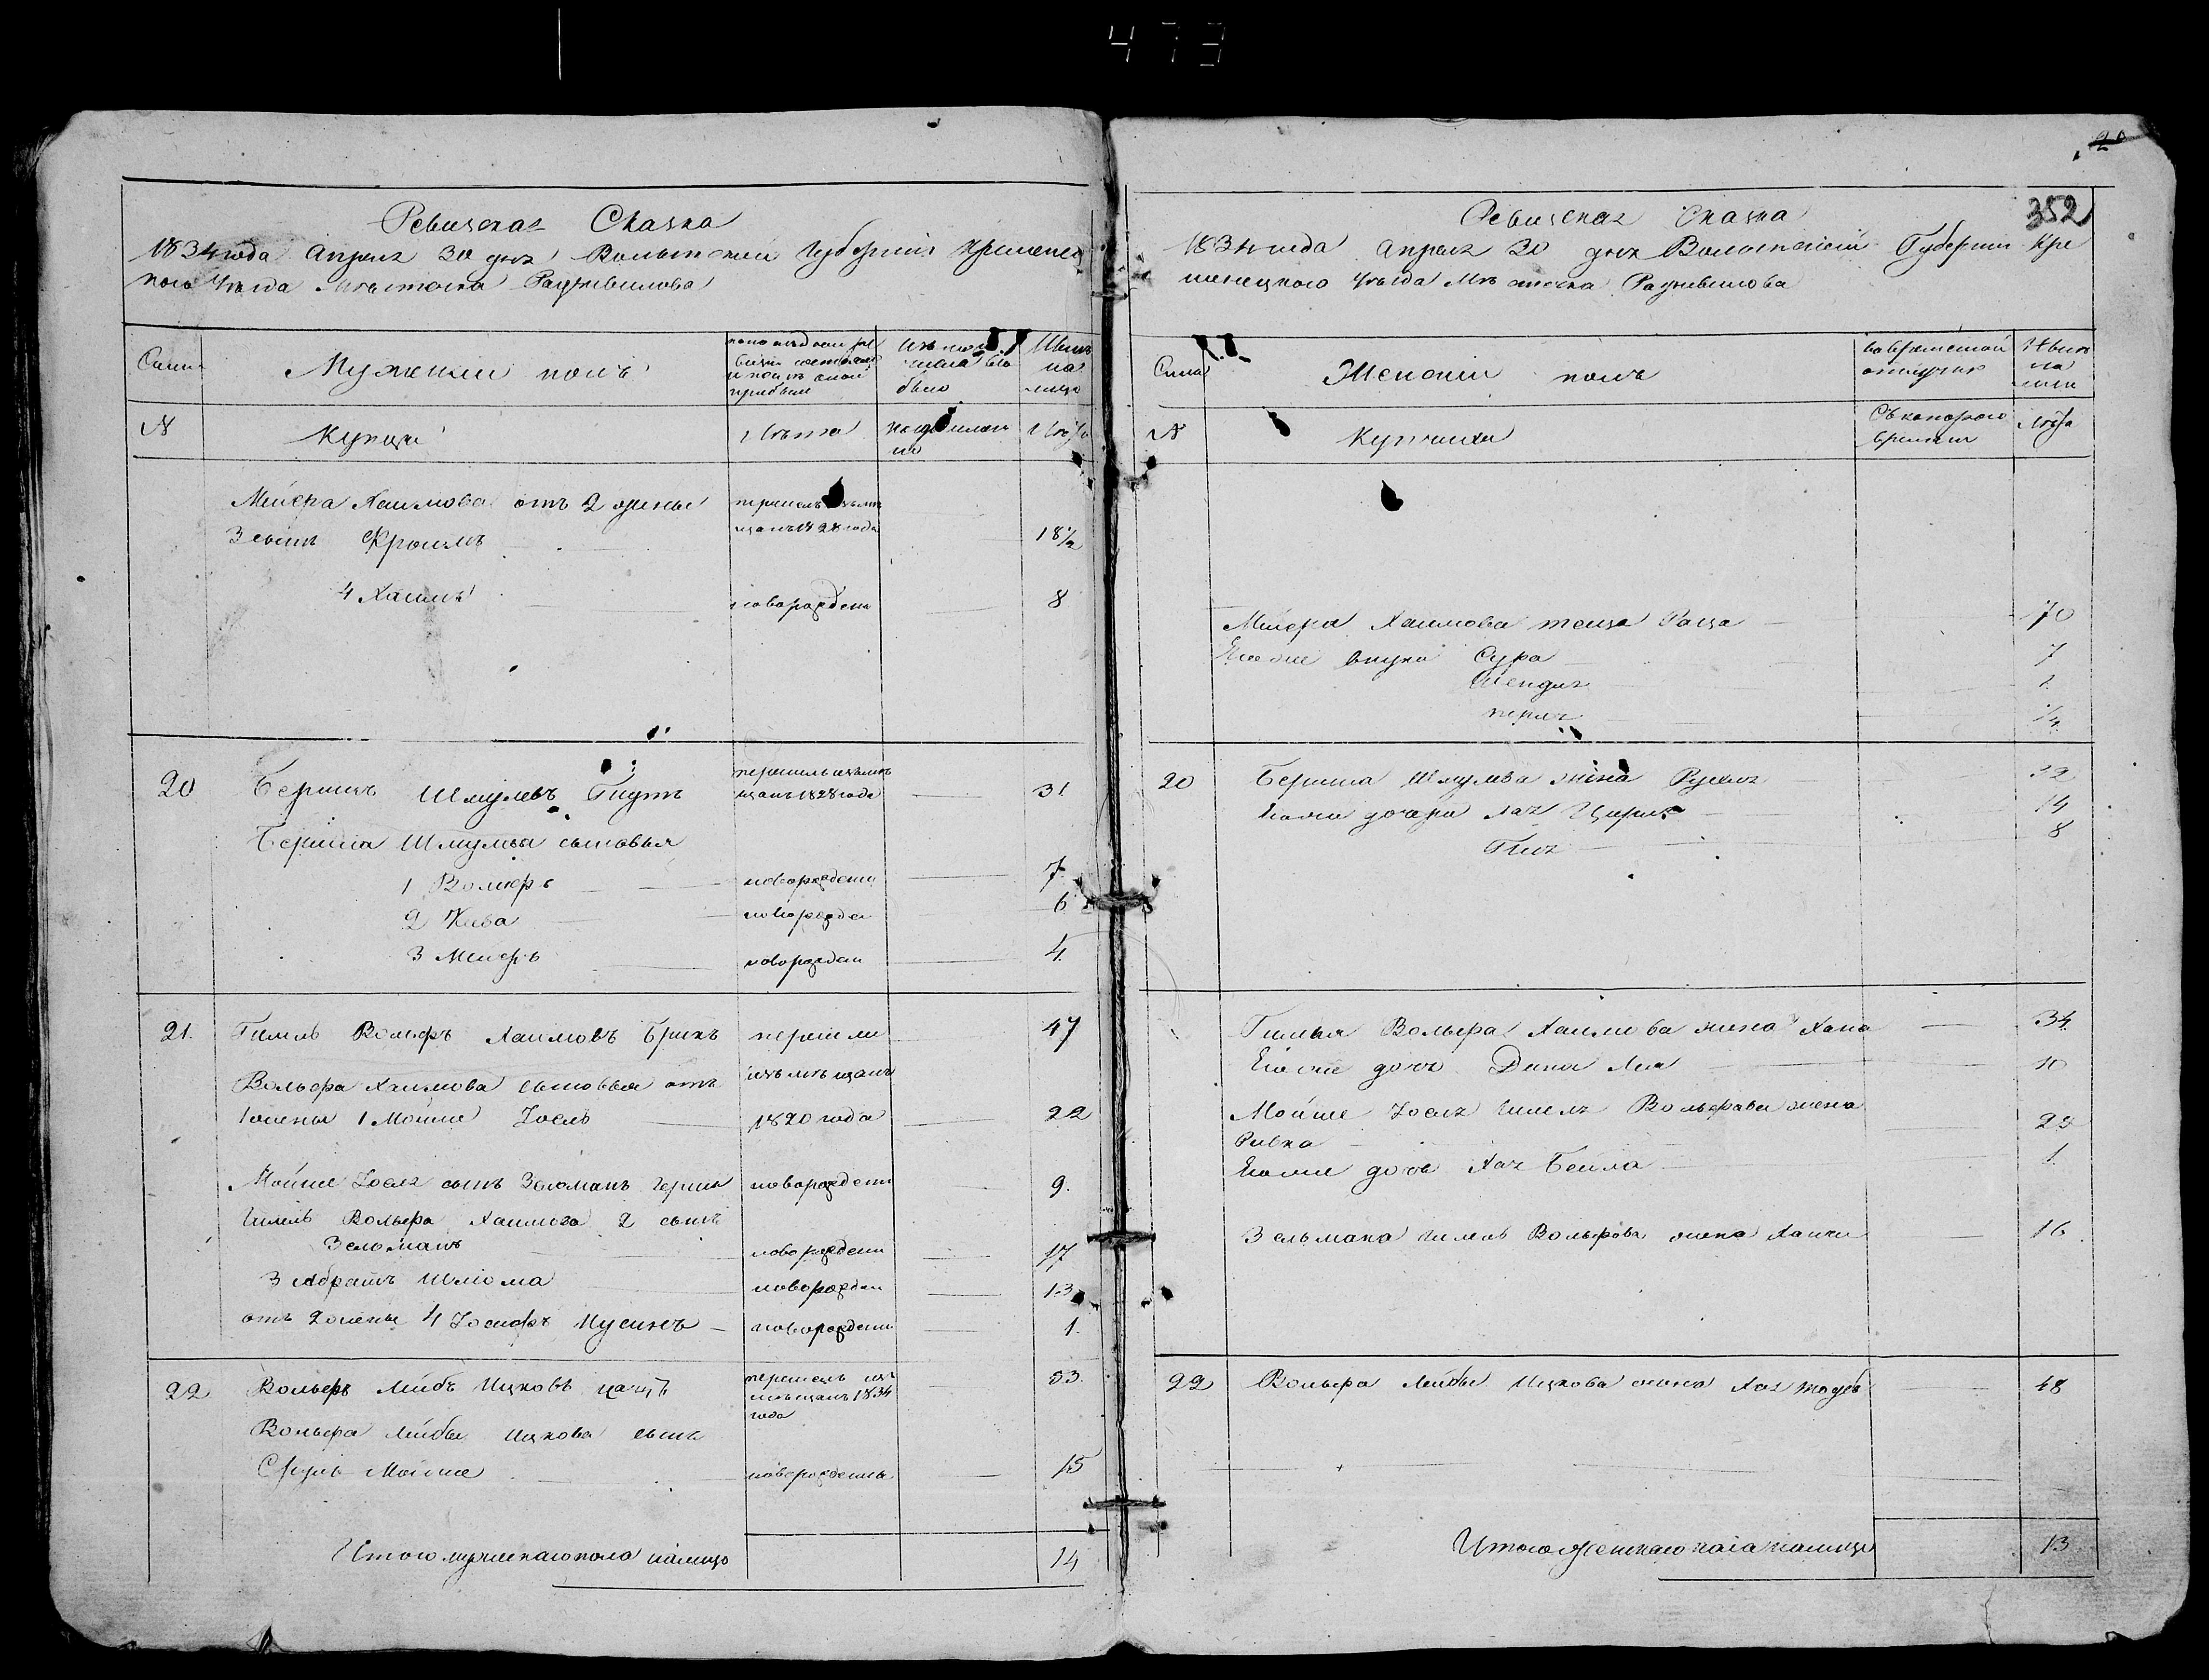 473
Ревизская Сказка
1834 года Апреля 30 дня Волынской Губернии Кременец
кого Уезда Местечка Радзивилова
Мужеский полъ
выбыло
Ныне
на
лицо
№
Купцы
Лета
Мейера Хаимова от 2 жены
3 сынъ Фроимъ
перешелъ изъ ме
щанъ 1828 года
18 1/2
4 Хаимъ
новорожденъ
8
20
Бериш Шмулевъ Гнутъ
перешелъ изъ ме
щанъ 1828 года
31
Бериша Шмулева сыновья
1 Вольфъ
новорожденъ
7
2 Кива
новорожден
6
3 Меиеръ
новорожден
4
21.
Гимель Вольфъ Хаимовъ Брикъ
перешли
47
Вольфа Хаимова сыновья отъ
изъ мещанъ
1 жены 1 Мойше Иосль
1820 года
22
Мойше Иоеля сынъ Зельманъ Гершк
новорожден
9.
Гимель Вольфа Хаимова 2 сынъ
Зельманъ
новорожден
17
3 Абрамъ Шлиома
новорожден
13
отъ 2 жены 4 Иосифъ
новорожден
1.
22
Вольфъ Лейбъ Ицковъ
перешелъ изъ
мещанъ 1834
года
53.
Вольфа Лейбы Ицкова сынъ
Сруль Мойше
новорожденъ
15
Итого мужескаго пола налицо
14
352
Ревизская Сказка
1834 года Апреля 30 дня Волынской Губернии Кре
менецкого Уезда Местечка Радзивилова
Женский полъ
во временной
отлучке
Ныне
на
лицо
№
Купчихи
Съ котораго
времени
Лета
Мейера Хаимова теща Раца
70
Его же внуки Сура
7
Шендля
2
Перля
1/4
20
Бериша Шмулева жена Рухля
32
Его же дочери Хая Цирля
14
Гитя
8
Гимеля Вольфа Хаимова жена Хана
34
Его же дочь Дина Лея
10
Мойше Иоеля Гимеля Вольфова жена
Ривка
22
Его же дочь Хая Бейла
1.
Зельмана Гимель Вольфова жена
16
22
Вольфа Лейбы Ицкова жена Хая
48
Итого женскаго пола налицо
13